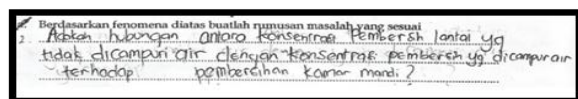 Berdasarkan fenomena diatas buatlah rumusan masalah yang sesuai
2. Adakah hubungan antara konsentrasi Pembersh lantai yg
tidak dicampuri air dengan konsentrasi pembersh yg dicampur air
terhadap pembersihan kamar mandi ?